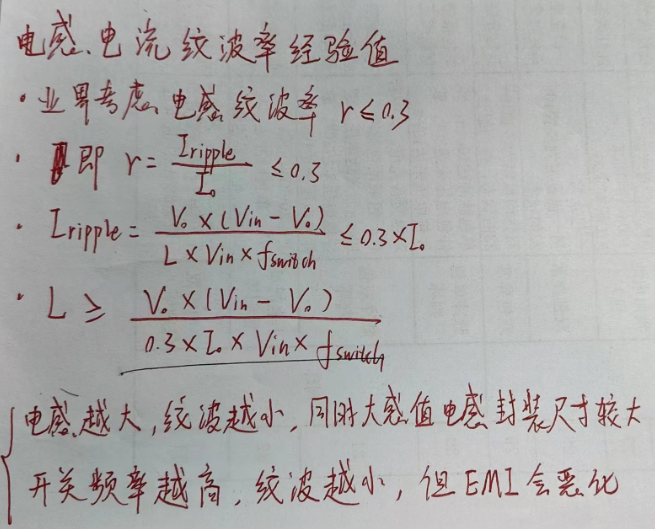 电感电流纹波率经验值
· 业界考虑电感纹波率 r≤0.3
· 即 r = Iripple / Io ≤ 0.3
· Iripple = Vo × (Vin − Vo) / L × Vin × fswitch ≤ 0.3×Io
· L ≥ Vo × (Vin − Vo) / 0.3 × Io × Vin × fswitch
电感越大,纹波越小,同时大感值电感封装尺寸较大
开关频率越高,纹波越小,但EMI会恶化